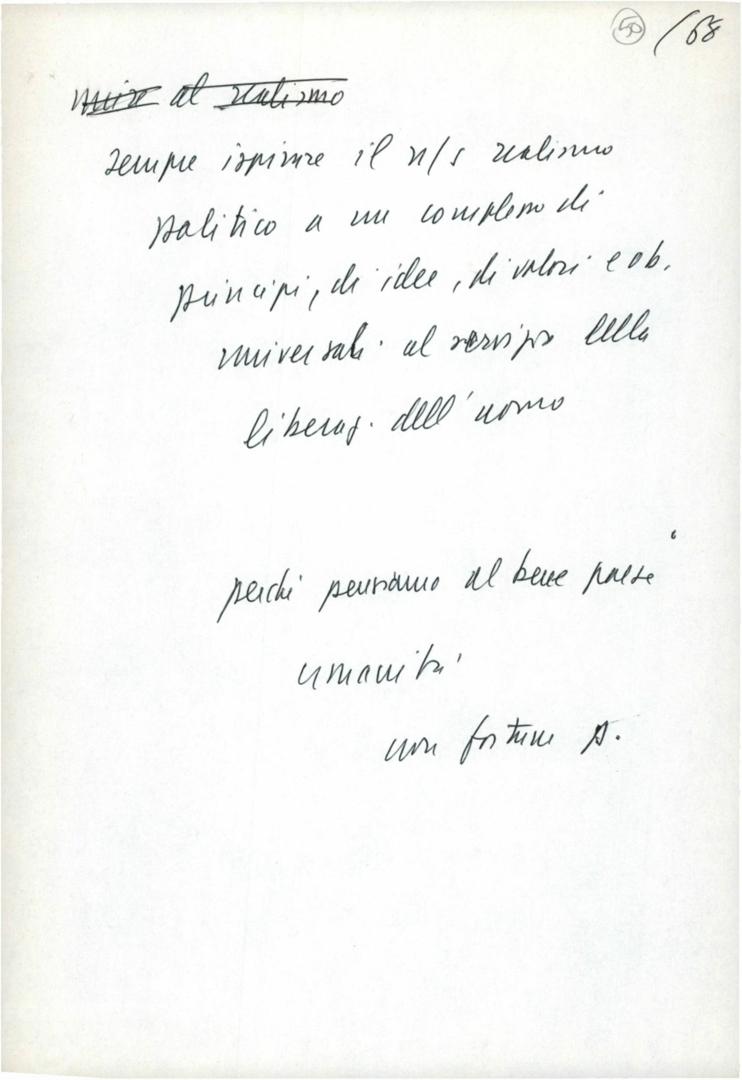 50 /68
al realismo
sempre ispirare il n/s realismo
politico a un complesso di
principi, di idee, di valori e ob.
universali al servizio della
liberaz. dell'uomo
perché pensiamo al bene paese
umanità
non fortune p.